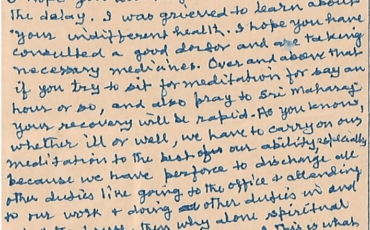 the delay. I was grieved to learn about
your indifferent health. I hope you have
consulted a good doctor and are taking
necessary medicines. Over and above that
if you try to sit for meditation for say an
hour or so, and also pray to Sri Maharaj
your recovery will be rapid. As you know,
whether ill or well, we have to carry on our
meditation to the best of our ability, especially
because we have perforce to discharge all
other duties like going to the office & attending
to our work & doing all other duties in and
then why alone spiritual
This is what